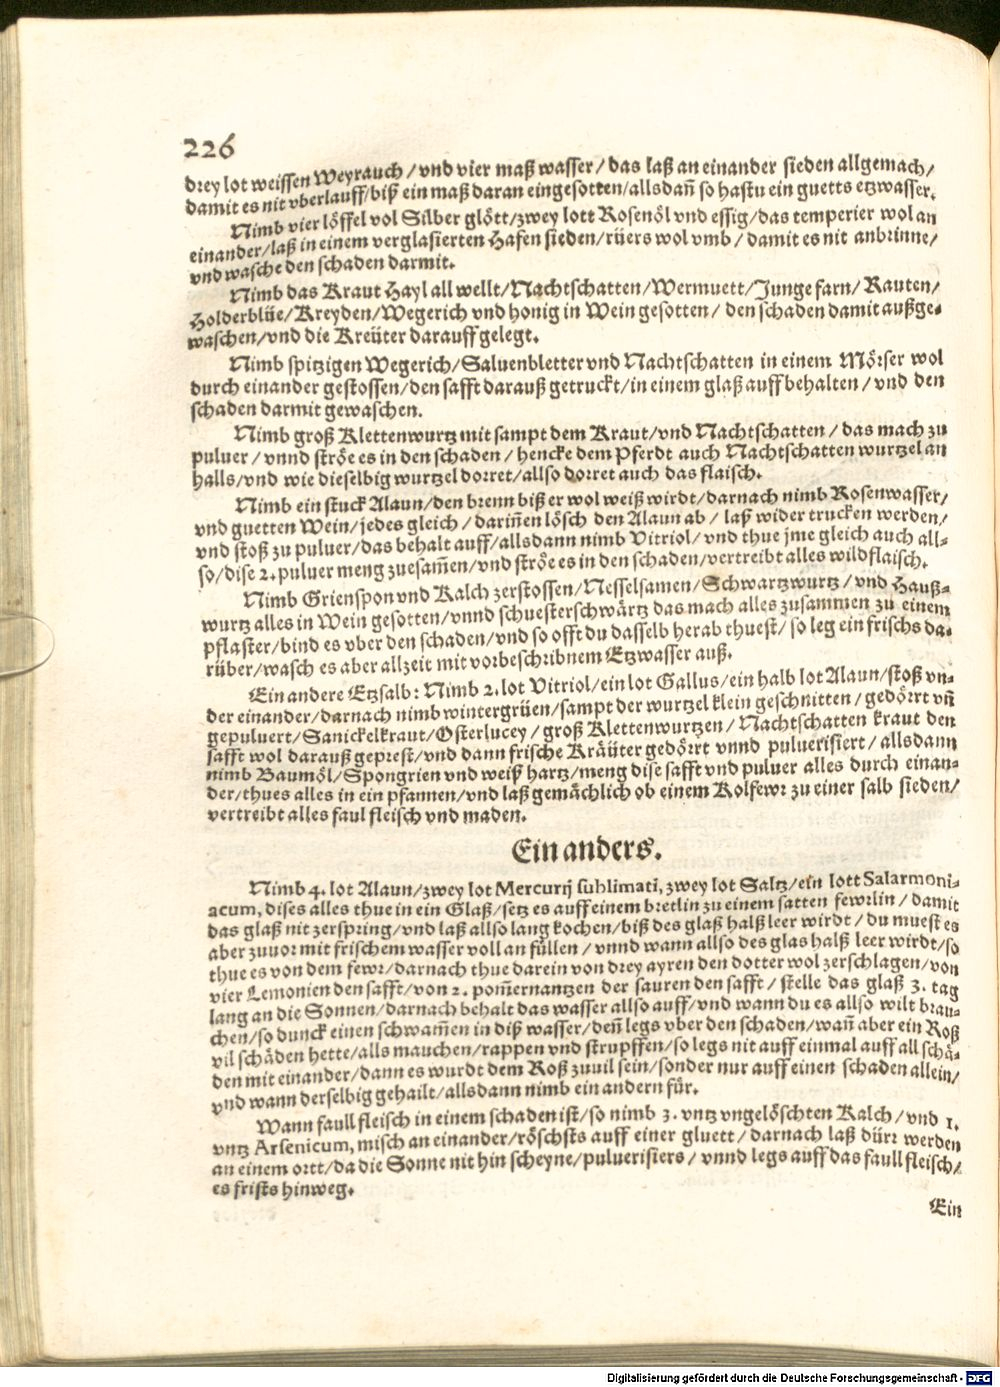 226
drey lot weissen Weyrauch / vnd vier maß wasser / das laß an einander sieden allgemach /
damit es nit vberlauff / biß ein maß daran eingesotten / allsdañ so hastu ein guetts etzwasser.
Nimb vier löffel vol Silber glött / zwey lott Rosenöl vnd essig / das temperier wol an
einander / laß in einem verglasierten Hafen sieden / rüers wol vmb / damit es nit anbrinne /
vnd wasche den schaden darmit.
Nimb das Kraut Hayl all wellt / Nachtschatten / Wermuett / Junge farn / Rauten /
Holderblüe / Kreyden / Wegerich vnd honig in Wein gesotten / den schaden damit außge=
waschen / vnd die Kreüter darauff gelegt.
Nimb spitzigen Wegerich / Saluenbletter vnd Nachtschatten in einem Mörser wol
durch einander gestossen / den safft darauß getruckt / in einem glaß auff behalten / vnd den
schaden darmit gewaschen.
Nimb groß Klettenwurtz mit sampt dem Kraut / vnd Nachtschatten / das mach zu
puluer / vnnd ströe es in den schaden / hencke dem Pferdt auch Nachtschatten wurtzel an
halls / vnd wie dieselbig wurtzel dorret / allso dorret auch das flaisch.
Nimb ein stuck Alaun / den brenn biß er wol weiß wirdt / darnach nimb Rosenwasser /
vnd guetten Wein / jedes gleich / dariñen lösch den Alaun ab / laß wider trucken werden /
vnd stoß zu puluer / das behalt auff / allsdann nimb Vitriol / vnd thue jme gleich auch all=
so / dise 2. puluer meng zuesam̃en / vnd ströe es in den schaden / vertreibt alles wildflaisch.
Nimb Grienspon vnd Kalch zerstossen / Nesselsamen / Schwartzwurtz / vnd Hauß=
wurtz alles in Wein gesotten / vnnd schuesterschwärtz das mach alles zusammen zu einem
pflaster / bind es vber den schaden / vnd so offt du dasselb herab thuest / so leg ein frischs da=
rüber / wasch es aber allzeit mit vorbeschribnem Etzwasser auß.
Ein andere Etzsalb: Nimb 2. lot Vitriol / ein lot Gallus / ein halb lot Alaun / stoß vn=
der einander / darnach nimb wintergrüen / sampt der wurtzel klein geschnitten / gedörrt vñ
gepuluert / Sanickelkraut / Osterlucey / groß Klettenwurtzen / Nachtschatten kraut den
safft wol darauß geprest / vnd dann frische Kräüter gedörrt vnnd puluerisiert / allsdann
nimb Baumöl / Spongrien vnd weiß hartz / meng dise safft vnd puluer alles durch einan=
der / thues alles in ein pfannen / vnd laß gemächlich ob einem Kolfewr zu einer salb sieden /
vertreibt alles faul fleisch vnd maden.
Ein anders.
Nimb 4. lot Alaun / zwey lot Mercurij sublimati, zwey lot Saltz / ein lott Salarmoni=
acum, dises alles thue in ein Glaß / setz es auff einem bretlin zu einem satten fewrlin / damit
das glaß nit zerspring / vnd laß allso lang kochen / biß des glaß halß leer wirdt / du muest es
aber zuuor mit frischem wasser voll an füllen / vnnd wann allso des glas halß leer wirdt / so
thue es von dem fewr / darnach thue darein von drey ayren den dotter wol zerschlagen / von
vier Lemonien den safft / von 2. pom̃ernantzen der sauren den safft / stelle das glaß 3. tag
lang an die Sonnen / darnach behalt das wasser allso auff / vnd wann du es allso wilt brau=
chen / so dunck einen schwam̃en in diß wasser / deñ legs vber den schaden / wañ aber ein Roß
vil schäden hette / alls mauchen / rappen vnd strupffen / so legs nit auff einmal auff all schä=
den mit einander / dann es wurdt dem Roß zuuil sein / sonder nur auff einen schaden allein /
vnd wann derselbig gehailt / allsdann nimb ein andern für.
Wann faull fleisch in einem schaden ist / so nimb 3. vntz vngelöschten Kalch / vnd 1.
vntz Arsenicum, misch an einander / röschsts auff einer gluett / darnach laß dürr werden
an einem ortt / da die Sonne nit hin scheyne / puluerisiers / vnnd legs auff das faull fleisch /
es frists hinweg.
Ein
Digitalisierung gefördert durch die Deutsche Forschungsgemeinschaft - DFG